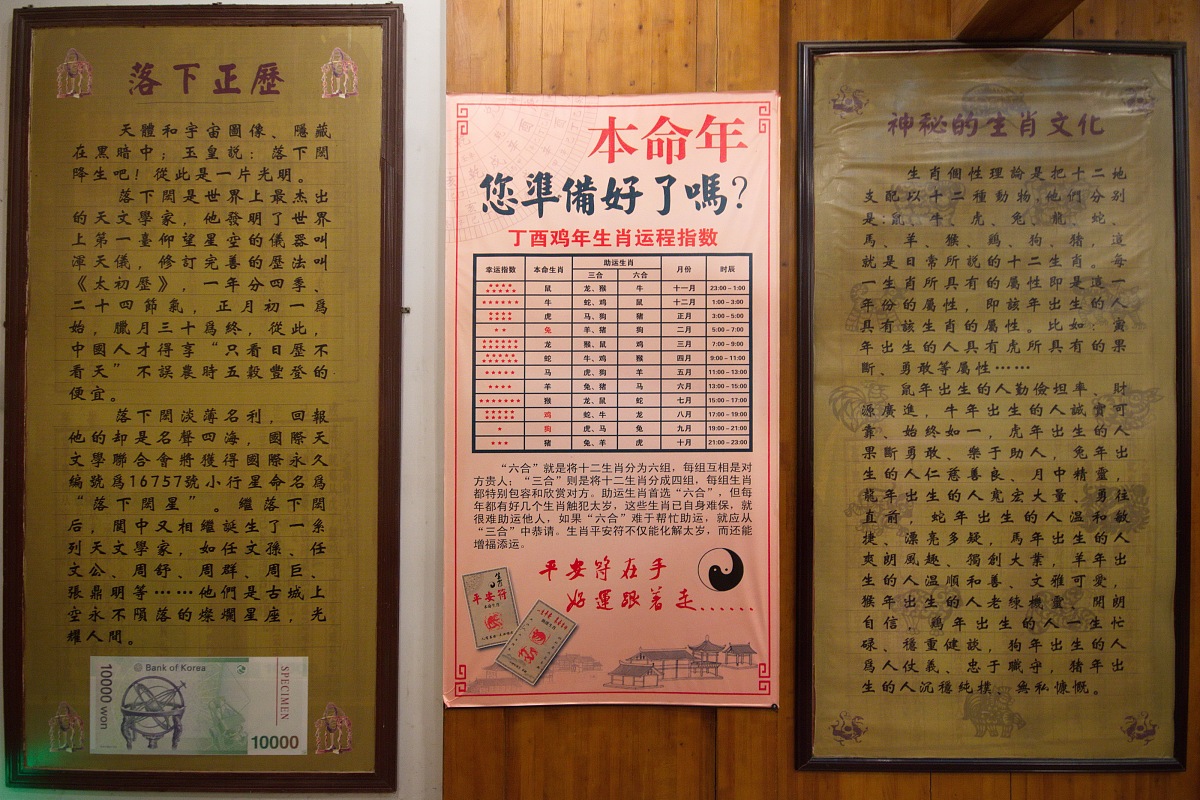 落下正歷
天體和宇宙圖像、隱藏
在黑暗中；玉皇説：落下閎
降生吧！從此是一片光明。
落下閎是世界上最杰出
的天文學家，他發明了世界
上第一臺仰望星空的儀器叫
渾天儀，修訂完善的歷法叫
《太初歷》，一年分四季、
二十四節氣，正月初一爲
始，臘月三十爲終，從此，
中國人才得享“只看日歷不
看天”不誤農時五穀豐登的
便宜。
落下閎淡薄名利，回報
他的却是名聲四海，國際天
文學聯合會將獲得國際永久
編號爲16757號小行星命名爲
“落下閎星”。繼落下閎
后，閬中又相繼誕生了一系
列天文學家，如任文孫、任
文公、周舒、周群、周巨、
張鼎明等……他們是古城上
空永不隕落的燦爛星座，光
耀人間。
Bank of Korea
10000 won
SPECIMEN
10000
本命年
您準備好了嗎？
丁酉鸡年生肖运程指数
幸运指数 本命生肖 助运生肖 月份 时辰
三合 六合
★★★★★★★★★ 鼠 龙、猴 牛 十一月 23:00－1:00
★★★★★★ 牛 蛇、鸡 鼠 十二月 1:00－3:00
★★★★★★★★ 虎 马、狗 猪 正月 3:00－5:00
★★ 兔 羊、猪 狗 二月 5:00－7:00
★★★★★★★★★★ 龙 猴、鼠 鸡 三月 7:00－9:00
★★★★★★★★★★ 蛇 牛、鸡 猴 四月 9:00－11:00
★★★★★ 马 虎、狗 羊 五月 11:00－13:00
★★★★ 羊 兔、猪 马 六月 13:00－15:00
★★★★★★★ 猴 龙、鼠 蛇 七月 15:00－17:00
★★★★★★★★★★ 鸡 蛇、牛 龙 八月 17:00－19:00
★ 狗 虎、马 兔 九月 19:00－21:00
★★★ 猪 兔、羊 虎 十月 21:00－23:00
“六合”就是将十二生肖分为六组，每组互相是对
方贵人；“三合”则是将十二生肖分成四组，每组生肖
都特别包容和欣赏对方。助运生肖首选“六合”，但每
年都有好几个生肖触犯太岁，这些生肖已自身难保，就
很难助运他人，如果“六合”难于帮忙助运，就应从
“三合”中恭请。生肖平安符不仅能化解太岁，而还能
增福添运。
平安符在手
好運跟著走......
平安符
神秘的生肖文化
生肖個性理論是把十二地
支配以十二種動物，他們分别
是：鼠、牛、虎、兔、龍、蛇、
馬、羊、猴、鷄、狗、猪，這
就是日常所説的十二生肖。每
一生肖所具有的屬性即是這一
年份的屬性，即該年出生的人
具有該生肖的屬性。比如：寅
年出生的人具有虎所具有的果
斷、勇敢等屬性……
鼠年出生的人勤儉坦率、財
源廣進，牛年出生的人誠實可
靠、始終如一，虎年出生的人
果斷勇敢、樂于助人，兔年出
生的人仁慈善良、月中精靈，
龍年出生的人寬宏大量、勇往
直前，蛇年出生的人温和敏
捷、漂亮多疑，馬年出生的人
爽朗風趣、獨創大業，羊年出
生的人温順和善、文雅可愛，
猴年出生的人老練機靈、開朗
自信，鷄年出生的人一生忙
碌、穩重健談，狗年出生的人
爲人仗義、忠于職守，猪年出
生的人沉穩純樸、無私慷慨。